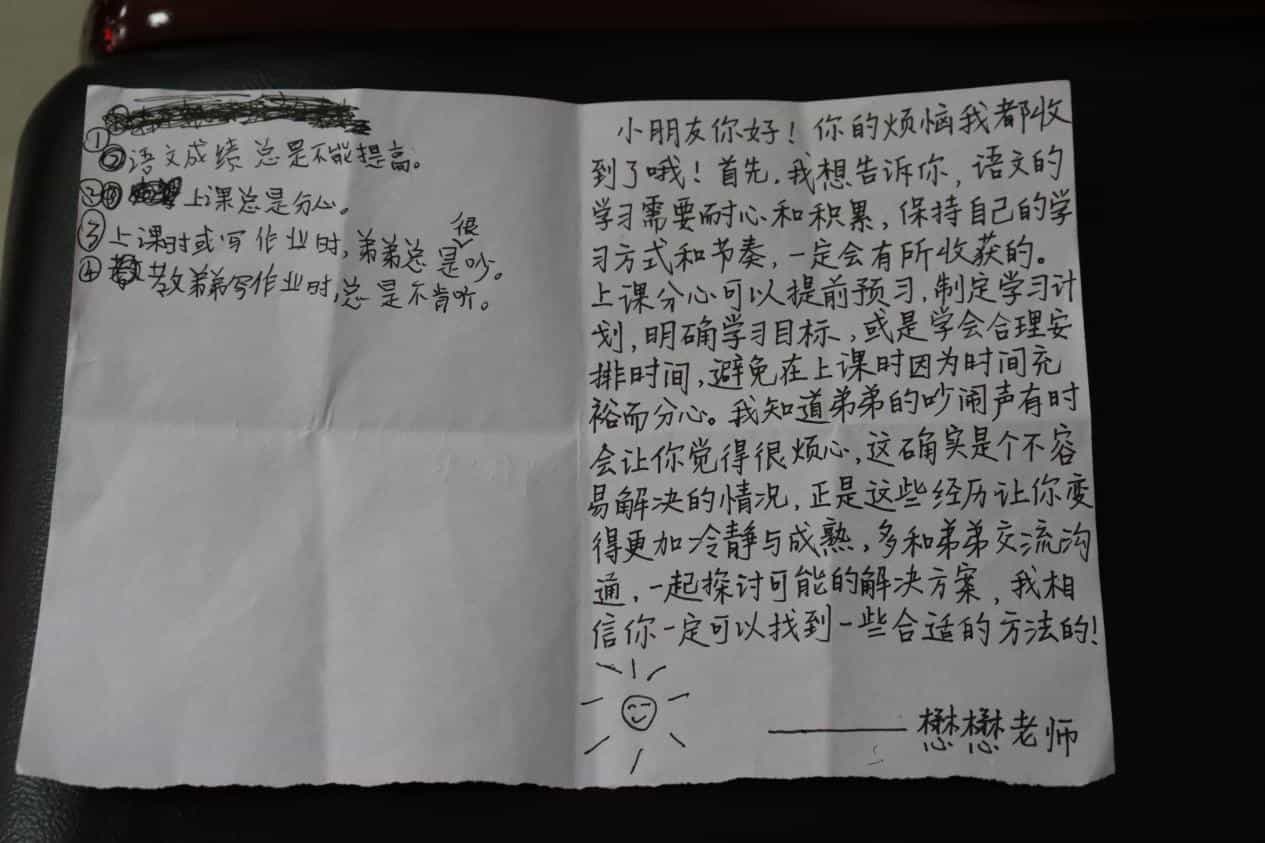 ① ②语文成绩总是不能提高。
② 上课总是分心。
③上课时或写作业时,弟弟总是很吵。
④ 教弟弟写作业时,总是不肯听。
小朋友你好！你的烦恼我都收
到了哦！首先,我想告诉你,语文的
学习需要耐心和积累,保持自己的学
习方式和节奏,一定会有所收获的。
上课分心可以提前预习,制定学习计
划,明确学习目标,或是学会合理安
排时间,避免在上课时因为时间充
裕而分心。我知道弟弟的吵闹声有时
会让你觉得很烦心,这确实是个不容
易解决的情况,正是这些经历让你变
得更加冷静与成熟,多和弟弟交流沟
通,一起探讨可能的解决方案,我相
信你一定可以找到一些合适的方法的！
——懋懋老师